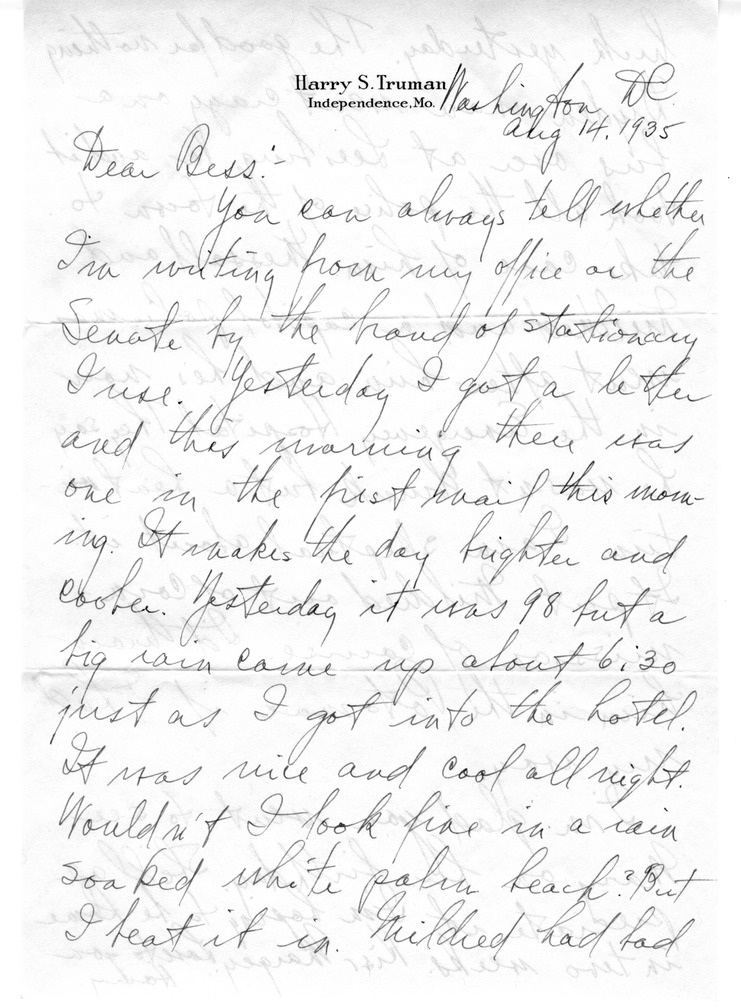 Harry S. Truman
Independence, Mo.
Washington, DC.
Aug 14, 1935
Dear Bess:-
You can always tell whether
I'm writing from my office or the
Senate by the brand of stationary
I use. Yesterday I got a letter
and this morning there was
one in the first mail this morn-
ing. It makes the day brighter and
cooler. Yesterday it was 98 but a
big rain came up about 6:30
just as I got into the hotel.
It was nice and cool all night.
Wouldn't I look fine in a rain
soaked white palm beach? But
I beat it in. Mildred had bad